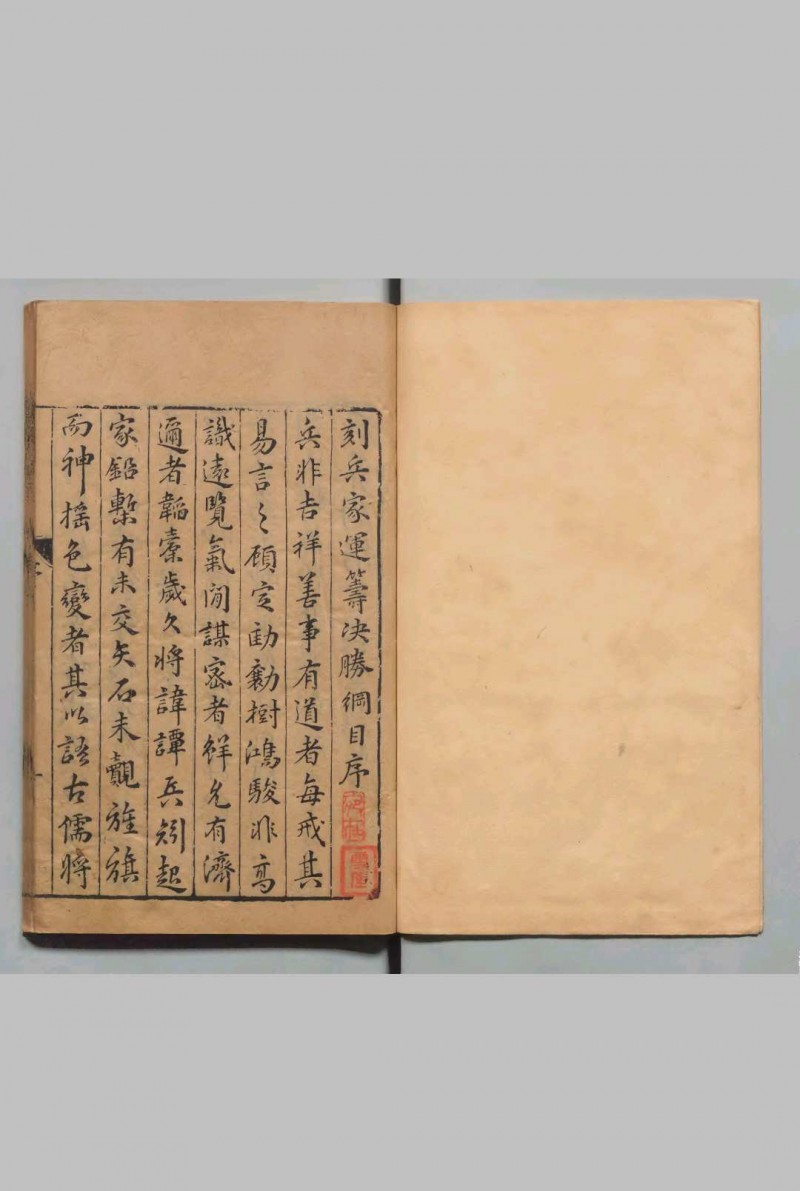 刻兵家運籌决勝綱目序
兵非吉祥善事有道者每戒其
易言之顧定勣勷樹鴻駿非高
識遠覽氣閒謀密者鮮克有濟
邇者韜櫜歲久將諱譚兵矧起
家鉛槧有未交矢石未覿旌旗
而神搖色變者其以語古儒將